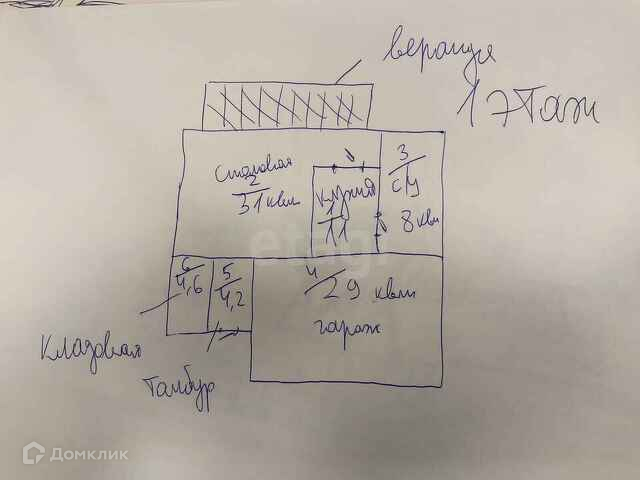 веранда
1 этаж
Столовая
2
31 квм
кухня
1
11
3
с/у
8 квм
6
4,6
5
4,2
4
29 квм
гараж
Кладовая
Тамбур
etagi
Домклик